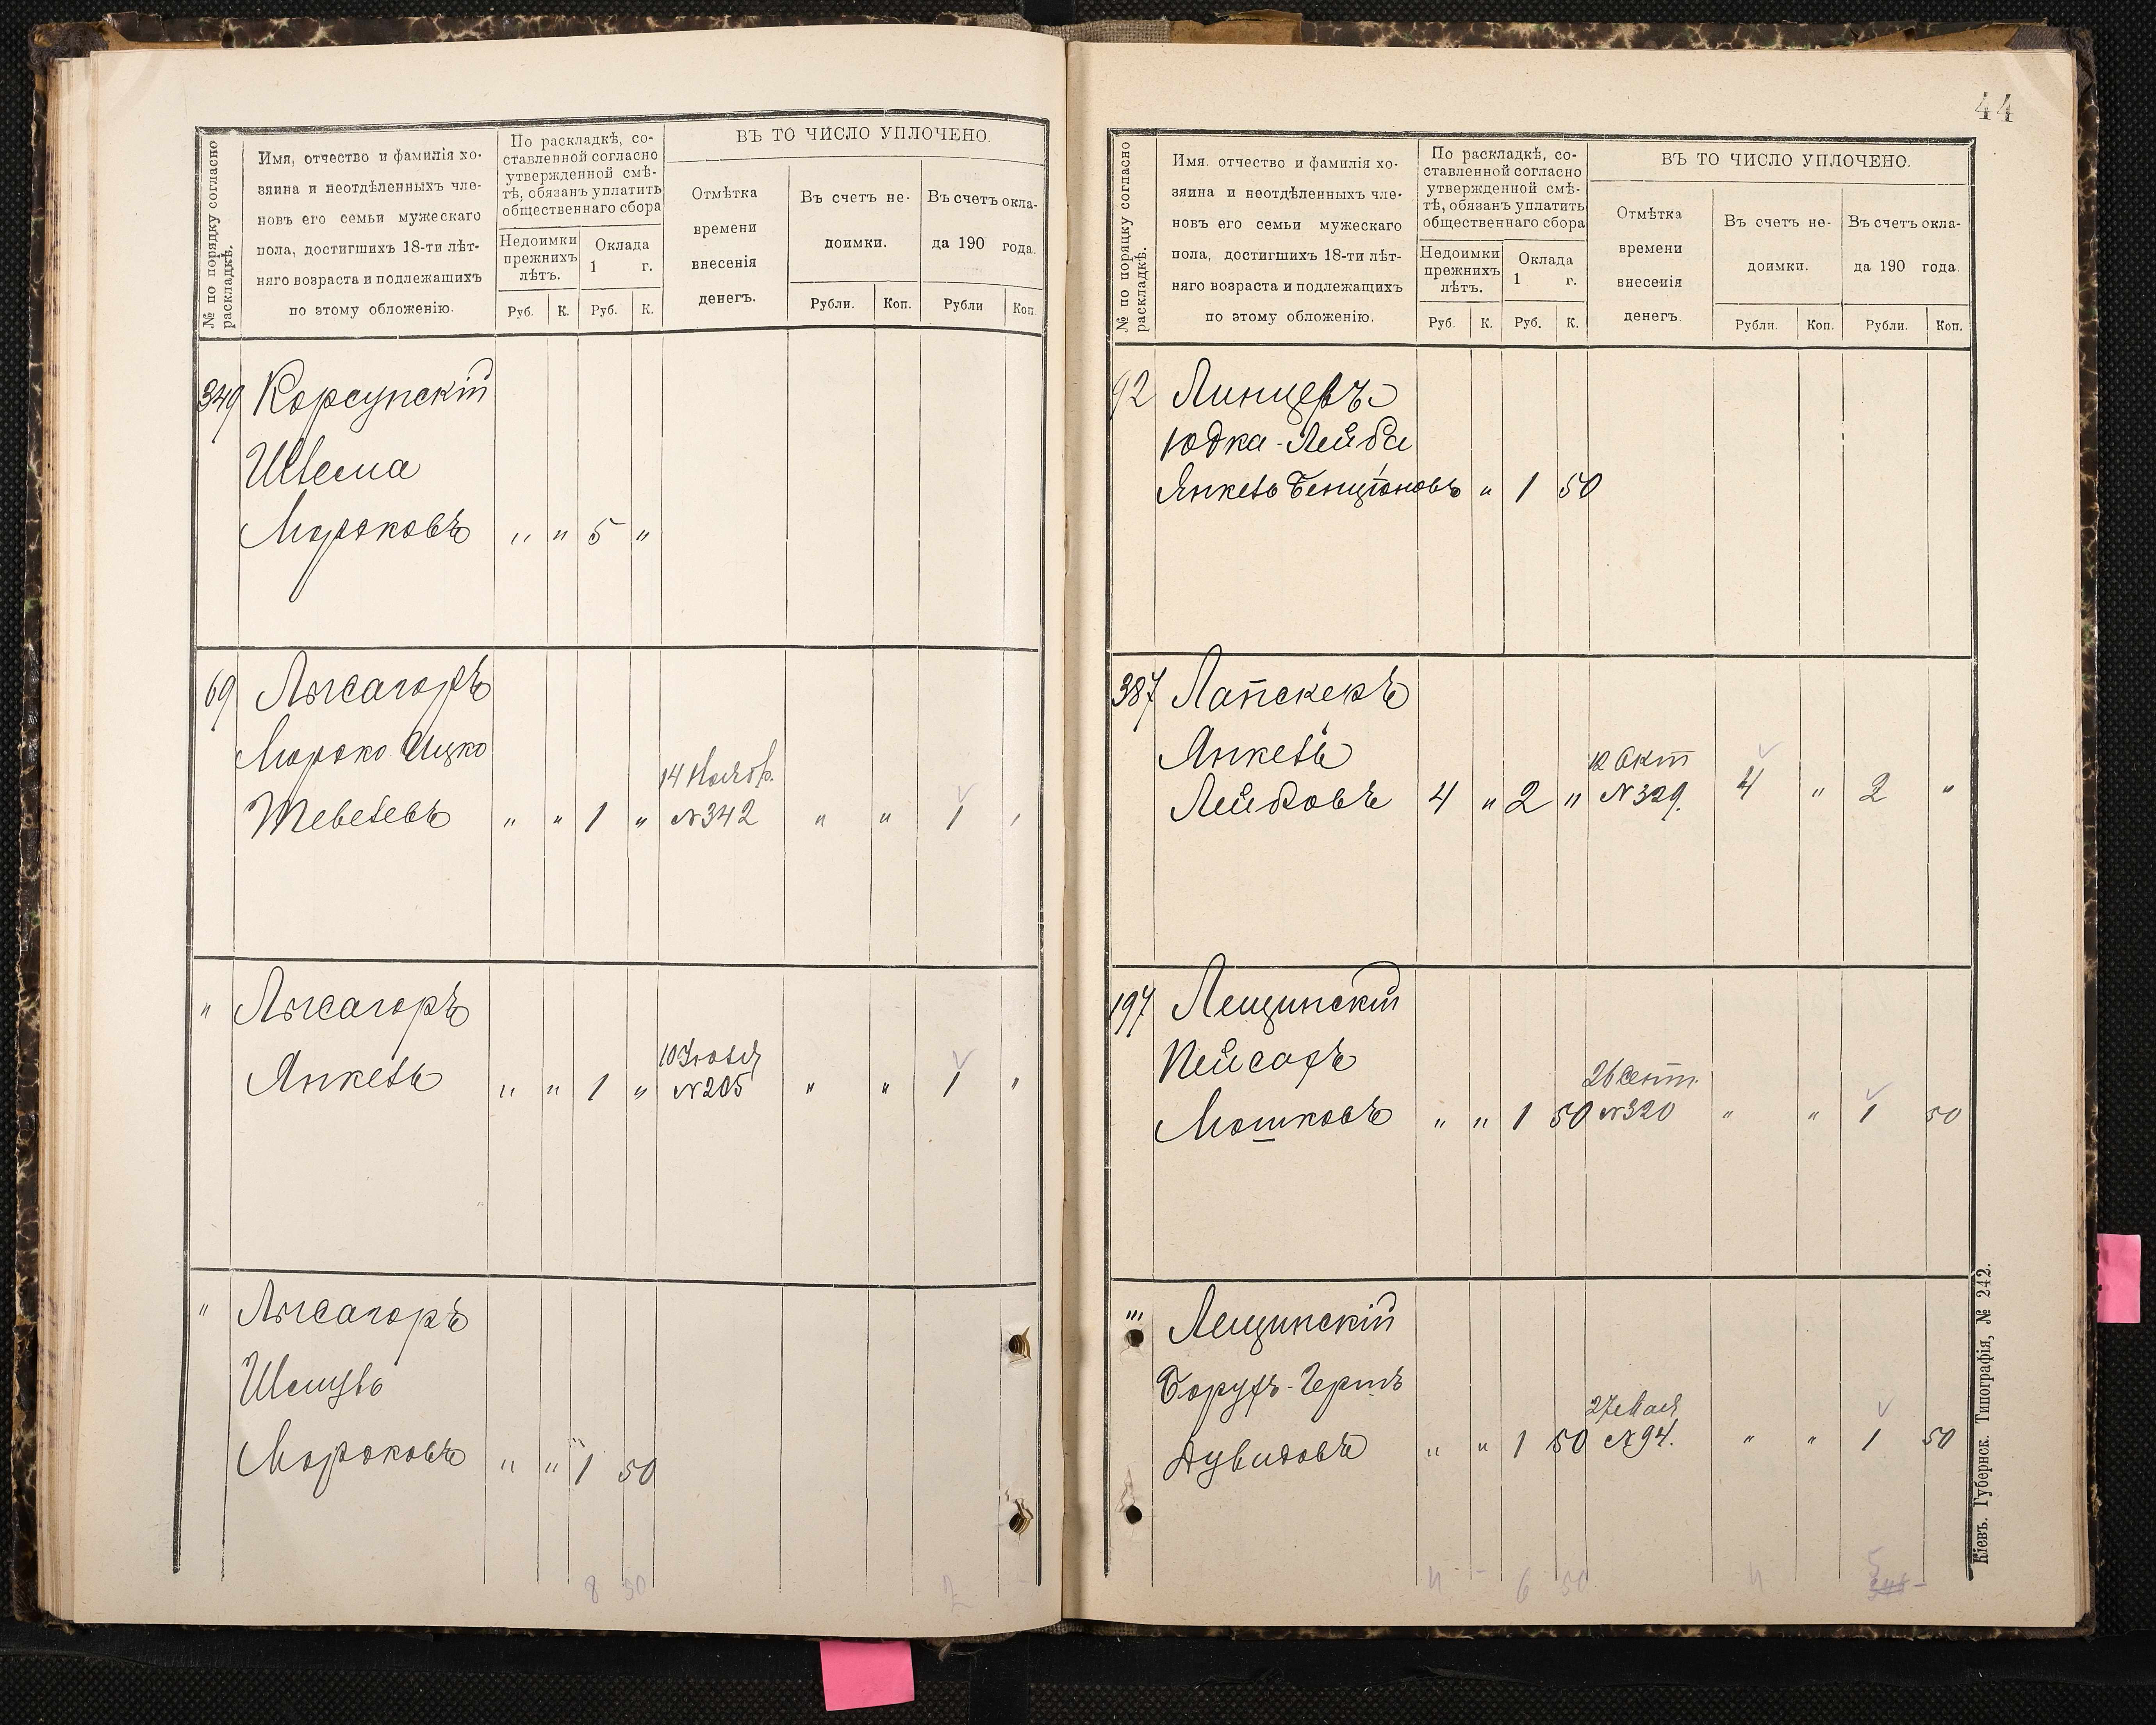 № по порядку согласно раскладкѣ.
Имя, отчество и фамилія хо-
зяина и неотдѣленныхъ чле-
новъ его семьи мужескаго
пола, достигшихъ 18-ти лѣт-
няго возраста и подлежащихъ
по этому обложенію.
По раскладкѣ, со-
ставленной согласно
утвержденной смѣ-
тѣ, обязанъ уплатить
общественнаго сбора
Недоимки
прежнихъ
лѣтъ.
Оклада
1 г.
Руб. К. Руб. К.
ВЪ ТО ЧИСЛО УПЛОЧЕНО.
Отмѣтка
времени
внесенія
денегъ.
Въ счетъ не-
доимки.
Въ счетъ окла-
да 190 года.
Рубли. Коп. Рубли Коп.
349 Корсунскій
Шлема
Мордковъ " " 5 "
69 Лысагоръ
Мордко Ицко
Тевелевъ " " 1 " 14 Ноябр. №342 " " 1 "
" Лысагоръ
Янкель " " 1 " 10 Іюля №205 " " 1 "
" Лысагоръ
Шмуль
Мордковъ " " 1 50
8 50 2 -
44
№ по порядку согласно раскладкѣ.
Имя. отчество и фамилія хо-
зяина и неотдѣленныхъ чле-
новъ его семьи мужескаго
пола, достигшихъ 18-ти лѣт-
няго возраста и подлежащихъ
по этому обложенію.
По раскладкѣ, со-
ставленной согласно
утвержденной смѣ-
тѣ, обязанъ уплатить
общественнаго сбора
Недоимки
прежнихъ
лѣтъ.
Оклада
1 г.
Руб. К. Руб. К.
ВЪ ТО ЧИСЛО УПЛОЧЕНО.
Отмѣтка
времени
внесенія
денегъ.
Въ счетъ не-
доимки.
Въ счетъ окла-
да 190 года.
Рубли. Коп. Рубли. Коп.
92 Линцеръ
Юдка-Лейба
Янкель Бенціоновъ " 1 50
387 Лапскеръ
Янкель
Лейбовъ 4 " 2 " 12 Окт №329. 4 " 2 "
197 Лещинскій
Пейсахъ
Мошковъ " " 1 50 26 Сент. №320 " " 1 50
" Лещинскій
Борухъ-Гершъ
Дувидовъ " " 1 50 27 Мая №94. " " 1 50
4 - 6 50 4 5 -
Кіевъ. Губернск. Типографія, № 242.